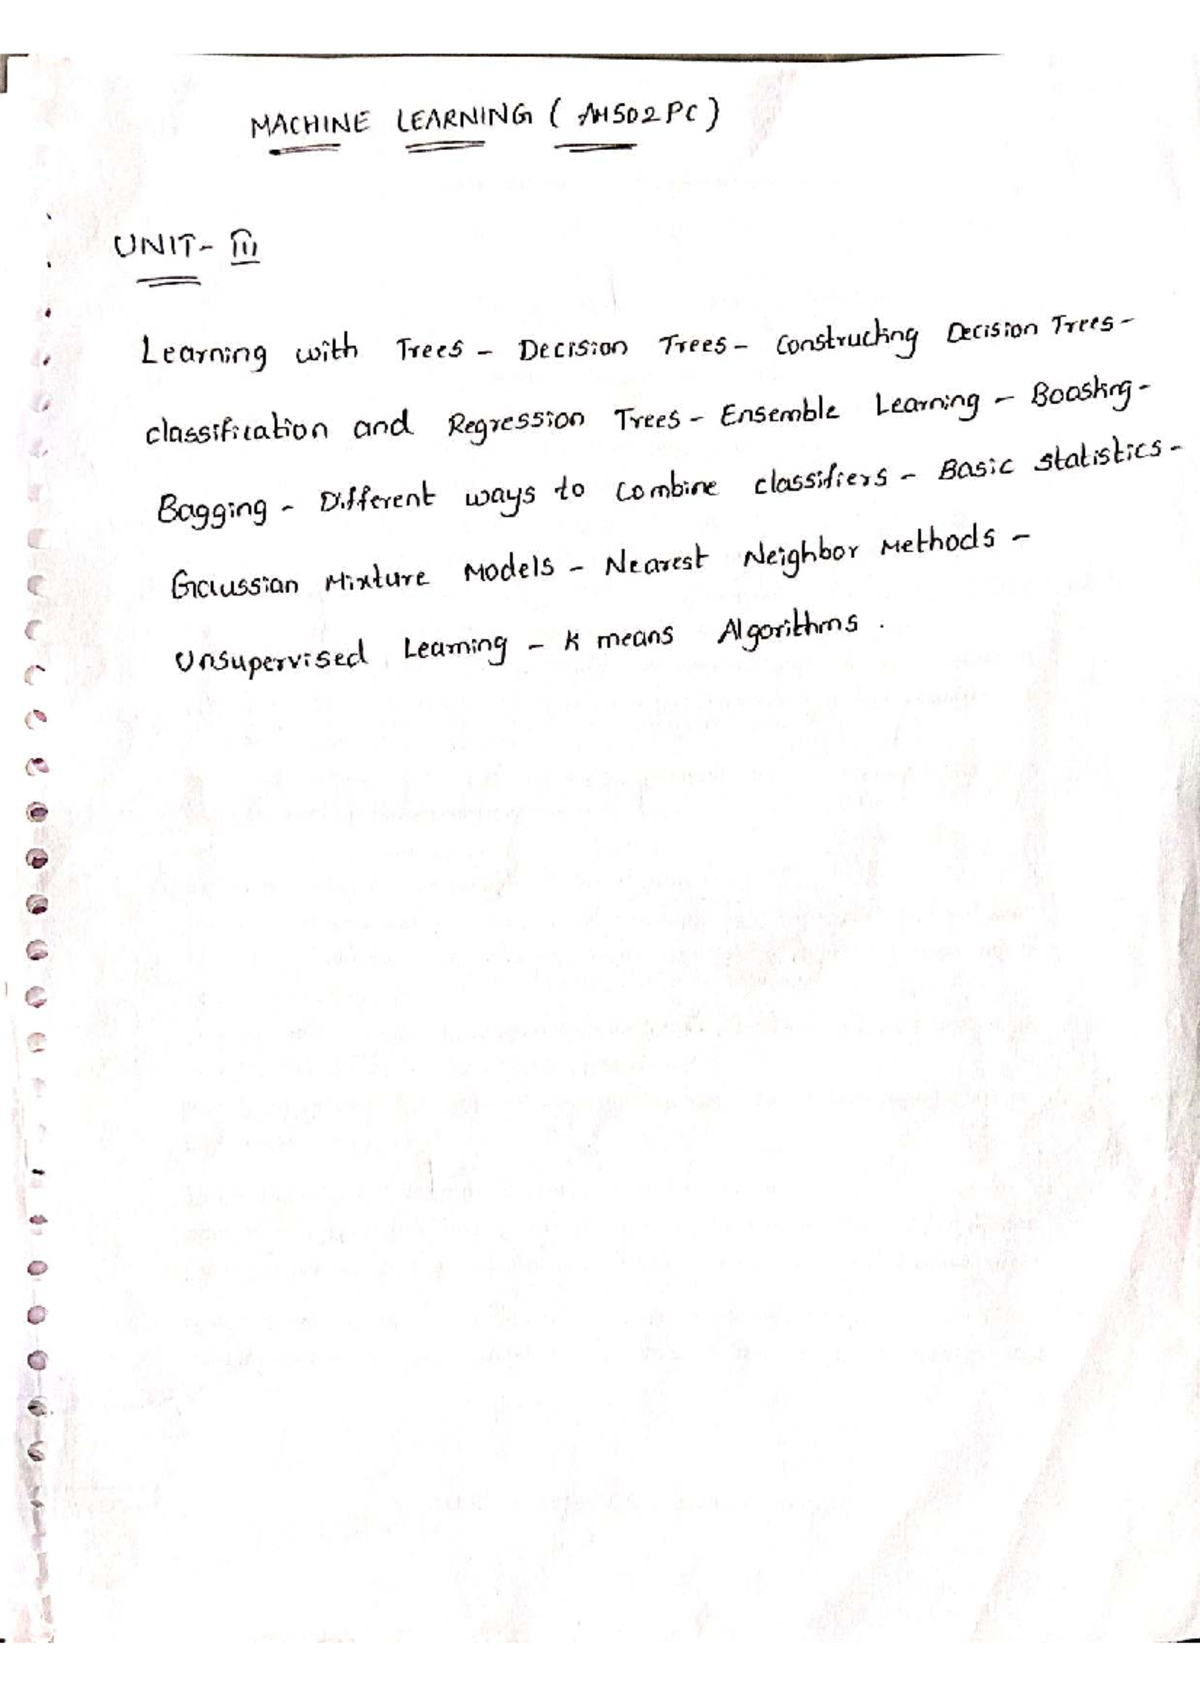 MACHINE LEARNING ( AM502PC )
UNIT- III
Learning with Trees - Decision Trees - Constructing Decision Trees -
classification and Regression Trees - Ensemble Learning - Boosting -
Bagging - Different ways to combine classifiers - Basic statistics -
Gaussian Mixture Models - Nearest Neighbor Methods -
Unsupervised Learning - K means Algorithms .